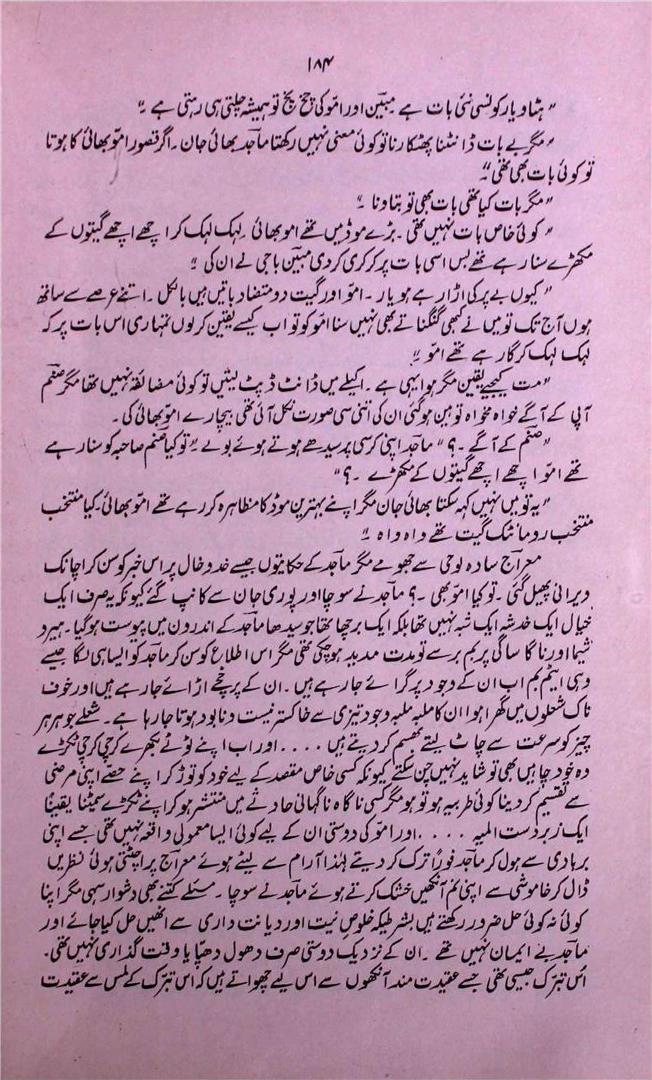 ۱۸۴
" ہٹاؤ یار کونسی نئی بات ہے مبین اور امو کی چخ پخ تو ہمیشہ چلتی ہی رہتی ہے ۔"
" مگر بے بات ڈانٹنا پھٹکارنا تو کوئی معنی نہیں رکھتا ماجد بھائی جان ۔ اگر قصور امو بھائی کا ہوتا
تو کوئی بات بھی تھی ۔"
" مگر بات کیا تھی بات بھی تو بتاؤ نا ۔"
" کوئی خاص بات نہیں تھی ۔ بڑے موڈ میں تھے امو بھائی ۔ لہک لہک کر اچھے اچھے گیتوں کے
مکھڑے سنا رہے تھے بس اسی بات پر کرکری کر دی مبین باجی نے ان کی ۔"
" کیوں بے پر کی اڑا رہے ہو یار ۔ امو اور گیت دو متضاد باتیں ہیں بالکل ۔ اتنے عرصے سے ساتھ
ہوں آج تک تو میں نے کبھی گنگناتے بھی نہیں سنا امو کو تو اب کیسے یقین کر لوں تمہاری اس بات پر کہ
لہک لہک کر گا رہے تھے امو ۔"
" مت کیجیے یقین مگر ہوا یہی ہے ۔ اکیلے میں ڈانٹ ڈپٹ لیتیں تو کوئی مضائقہ نہیں تھا مگر صنم
آپی کے آگے خواہ مخواہ توہین ہو گئی ان کی اتنی سی صورت نکل آئی تھی بیچارے امو بھائی کی ۔
" صنم کے آگے ۔ ؟" ماجد اپنی کرسی پر سیدھے ہوتے ہوئے بولے ۔" تو کیا صنم صاحبہ کو سنا رہے
تھے امو اچھے اچھے گیتوں کے مکھڑے ۔ ؟"
" یہ تو میں نہیں کہہ سکتا بھائی جان مگر اپنے بہترین موڈ کا مظاہرہ کر رہے تھے امو بھائی ۔ کیا منتخب
منتخب رومانٹک گیت تھے واہ واہ ۔"
معراج سادہ لوحی سے جھومے مگر ماجد کے حکایتوں جیسے خدوخال پر اس خبر کو سن کر اچانک
ویرانی پھیل گئی ۔ تو کیا امو بھی ۔ ؟ ماجد نے سوچا اور پوری جان سے کانپ گئے کیونکہ یہ صرف ایک
خیال ایک خدشہ ایک شبہ نہیں تھا بلکہ ایک برچھا تھا جو سیدھا ماجد کے اندرون میں پیوست ہو گیا ۔ ہیرو
شیما اور ناگا ساگی پر بم برسے تو مدت مدید ہو چکی تھی مگر اس اطلاع کو سن کر ماجد کو ایسا ہی لگا جیسے
وہی ایٹم بم اب ان کے وجود پر گرائے جا رہے ہیں ۔ ان کے پرخچے اڑائے جا رہے ہیں اور خوف
ناک شعلوں میں گھرا ہوا ان کا ملبہ ملبہ وجود تیزی سے خاکستر نیست و نابود ہوتا جا رہا ہے ۔ شعلے جو ہر ہر
چیز کو سرعت سے چاٹ لیتے بھسم کر دیتے ہیں .... اور اب اپنے ٹوٹے بکھرے کرچی کرچی ٹکڑے
وہ خود چاہیں بھی تو شاید نہیں چن سکتے کیونکہ کسی خاص مقصد کے لیے خود کو توڑ کر اپنے حصے اپنی مرضی
سے تقسیم کر دینا کوئی طربیہ ہو تو ہو مگر کسی ناگاہ ناگہانی حادثے میں منتشر ہو کر اپنے ٹکڑے سمیٹنا یقیناً
ایک زبردست المیہ .... اور امو کی دوستی ان کے لیے کوئی ایسا معمولی واقعہ نہیں تھی جسے اپنی
بربادی سے ہول کر ماجد فوراً ترک کر دیتے لہٰذا آرام سے لیٹے ہوئے معراج پر اچٹتی ہوئی نظریں
ڈال کر خاموشی سے اپنی نم آنکھیں خشک کرتے ہوئے ماجد نے سوچا ۔ مسئلے کتنے بھی دشوار سہی مگر اپنا
کوئی نہ کوئی حل ضرور رکھتے ہیں بشرطیکہ خلوصِ نیت اور دیانت داری سے انھیں حل کیا جائے اور
ماجد بے ایمان نہیں تھے ۔ ان کے نزدیک دوستی صرف دھول دھپا یا وقت گذاری نہیں تھی ۔
اُس تبرک جیسی تھی جسے عقیدت مند آنکھوں سے اس لیے چھواتے ہیں کہ اس تبرک کے لمس سے عقیدت